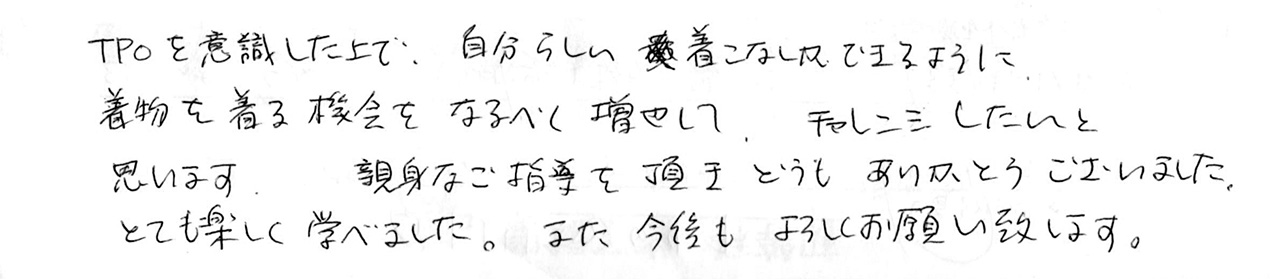 TPOを意識した上で、自分らしい着こなしができるように
着物を着る機会をなるべく増やして、チャレンジしたいと
思います。 親身なご指導を頂きどうもありがとうございました。
とても楽しく学べました。また今後もよろしくお願い致します。